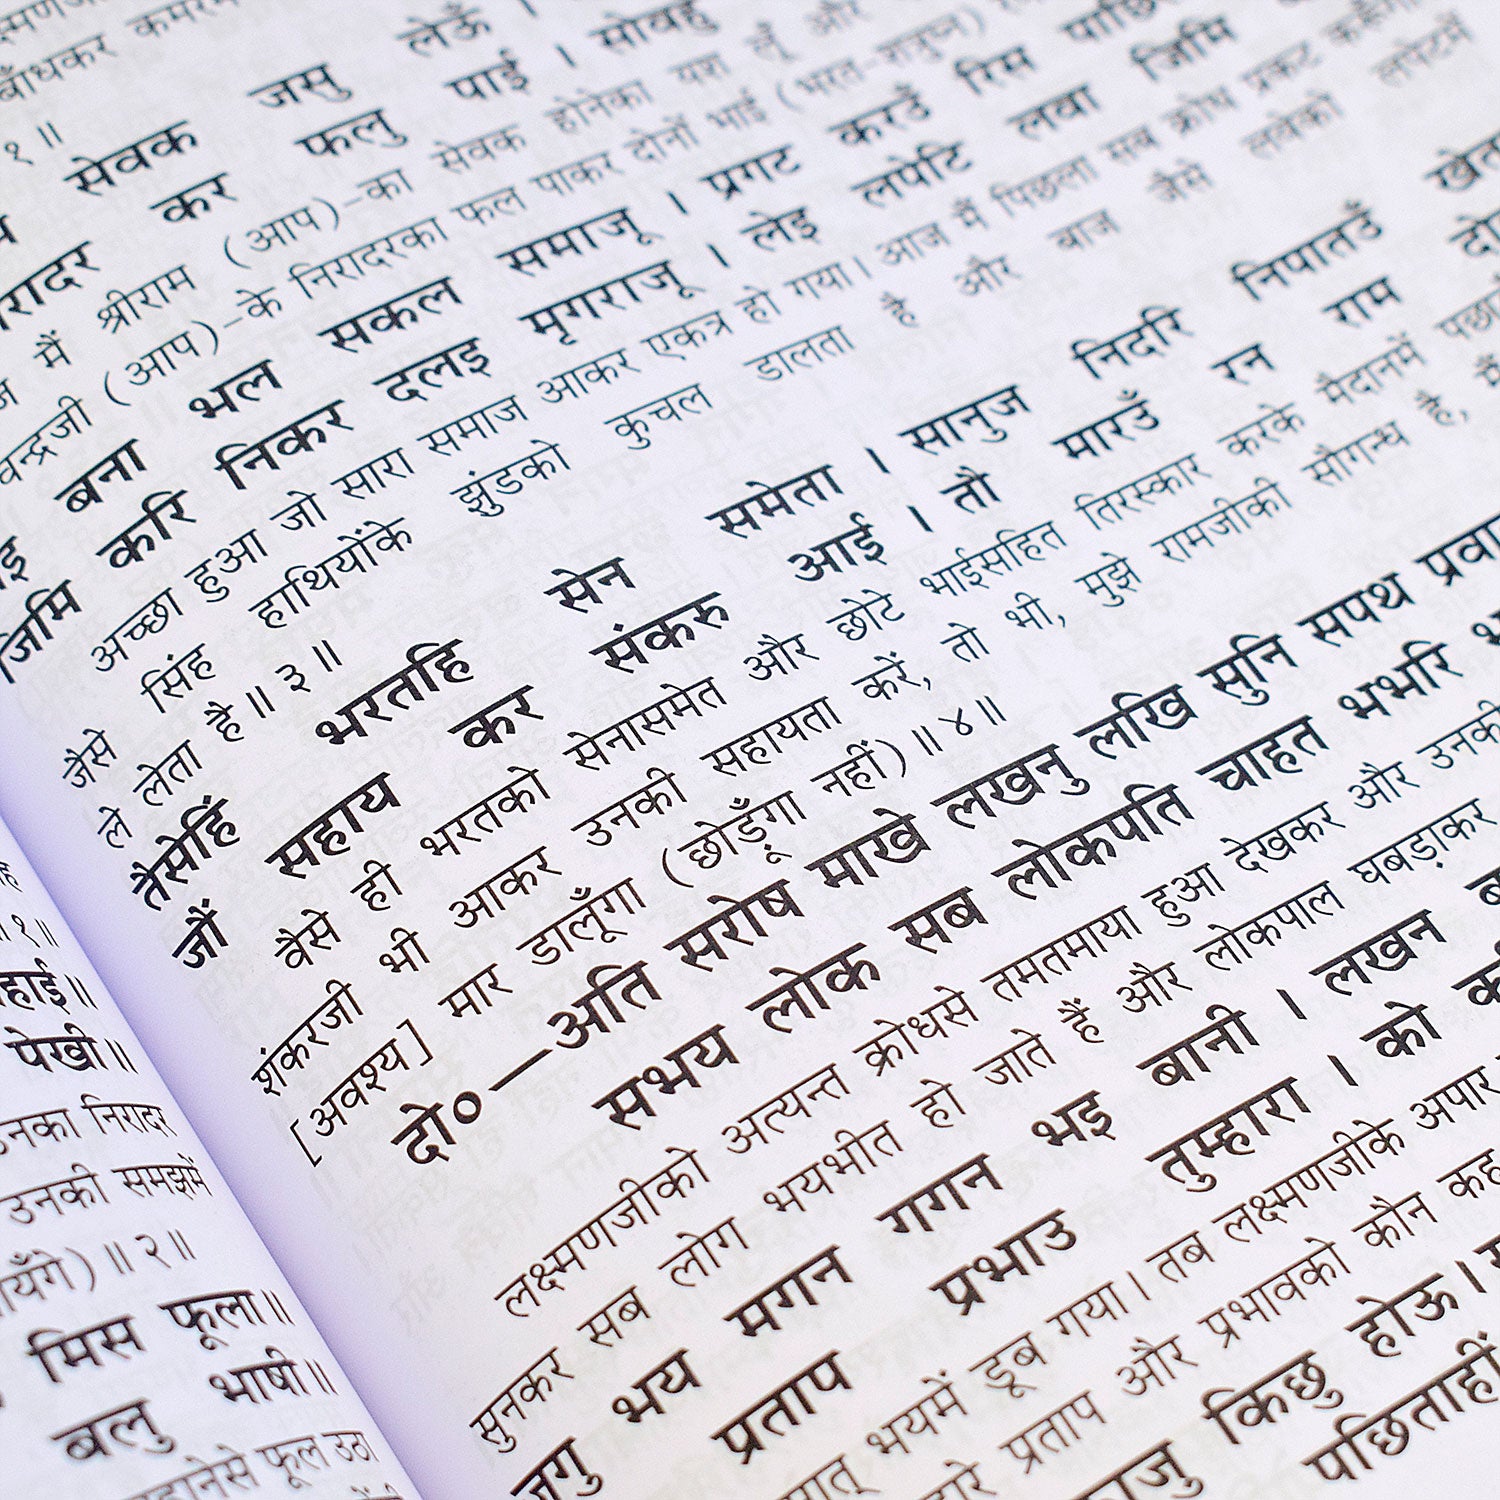 बाँधकर कमरमें
१॥
सेवक जसु लेऊँ ।
निरादर कर फलु पाई । सोवहुँ
मैं श्रीराम (आप)-का सेवक होनेका यश लूँ और
(आप)-के निरादरका फल पाकर दोनों भाई (भरत-शत्रुघ्न)
बना भल सकल समाजू । प्रगट करउँ रिस पाछिल
जिमि करि निकर दलइ मृगराजू । लेइ लपेटि लवा जिमि
अच्छा हुआ जो सारा समाज आकर एकत्र हो गया। आज मैं पिछला सब क्रोध प्रकट करूँगा।
जैसे सिंह हाथियोंके झुंडको कुचल डालता है और बाज जैसे लवेको लपेटमें
ले लेता है॥ ३॥
तैसेहिं भरतहि सेन समेता । सानुज निदरि निपातउँ खेता
जौं सहाय कर संकरु आई । तौ मारउँ रन राम दोहाई
वैसे ही भरतको सेनासमेत और छोटे भाईसहित तिरस्कार करके मैदानमें
शंकरजी भी आकर उनकी सहायता करें, तो भी, मुझे रामजीकी सौगन्ध है, मैं
[अवश्य] मार डालूँगा (छोड़ूँगा नहीं)॥ ४॥
दो०—अति सरोष माखे लखनु लखि सुनि सपथ प्रवान
सभय लोक सब लोकपति चाहत भभरि
लक्ष्मणजीको अत्यन्त क्रोधसे तमतमाया हुआ देखकर और उनकी
सुनकर सब लोग भयभीत हो जाते हैं और लोकपाल घबड़ाकर
जगु भय मगन गगन भइ बानी । लखन
प्रताप प्रभाउ तुम्हारा । को
भयमें डूब गया। तब लक्ष्मणजीके अपार
प्रताप और प्रभावको कौन कह
किछु होऊ ।
पछिताहीं
१॥
हाई॥
पेखी॥
उनका निरादर
उनकी समझमें
॥ २॥
मिस फूला॥
बलु भाषी॥
फूल उठा